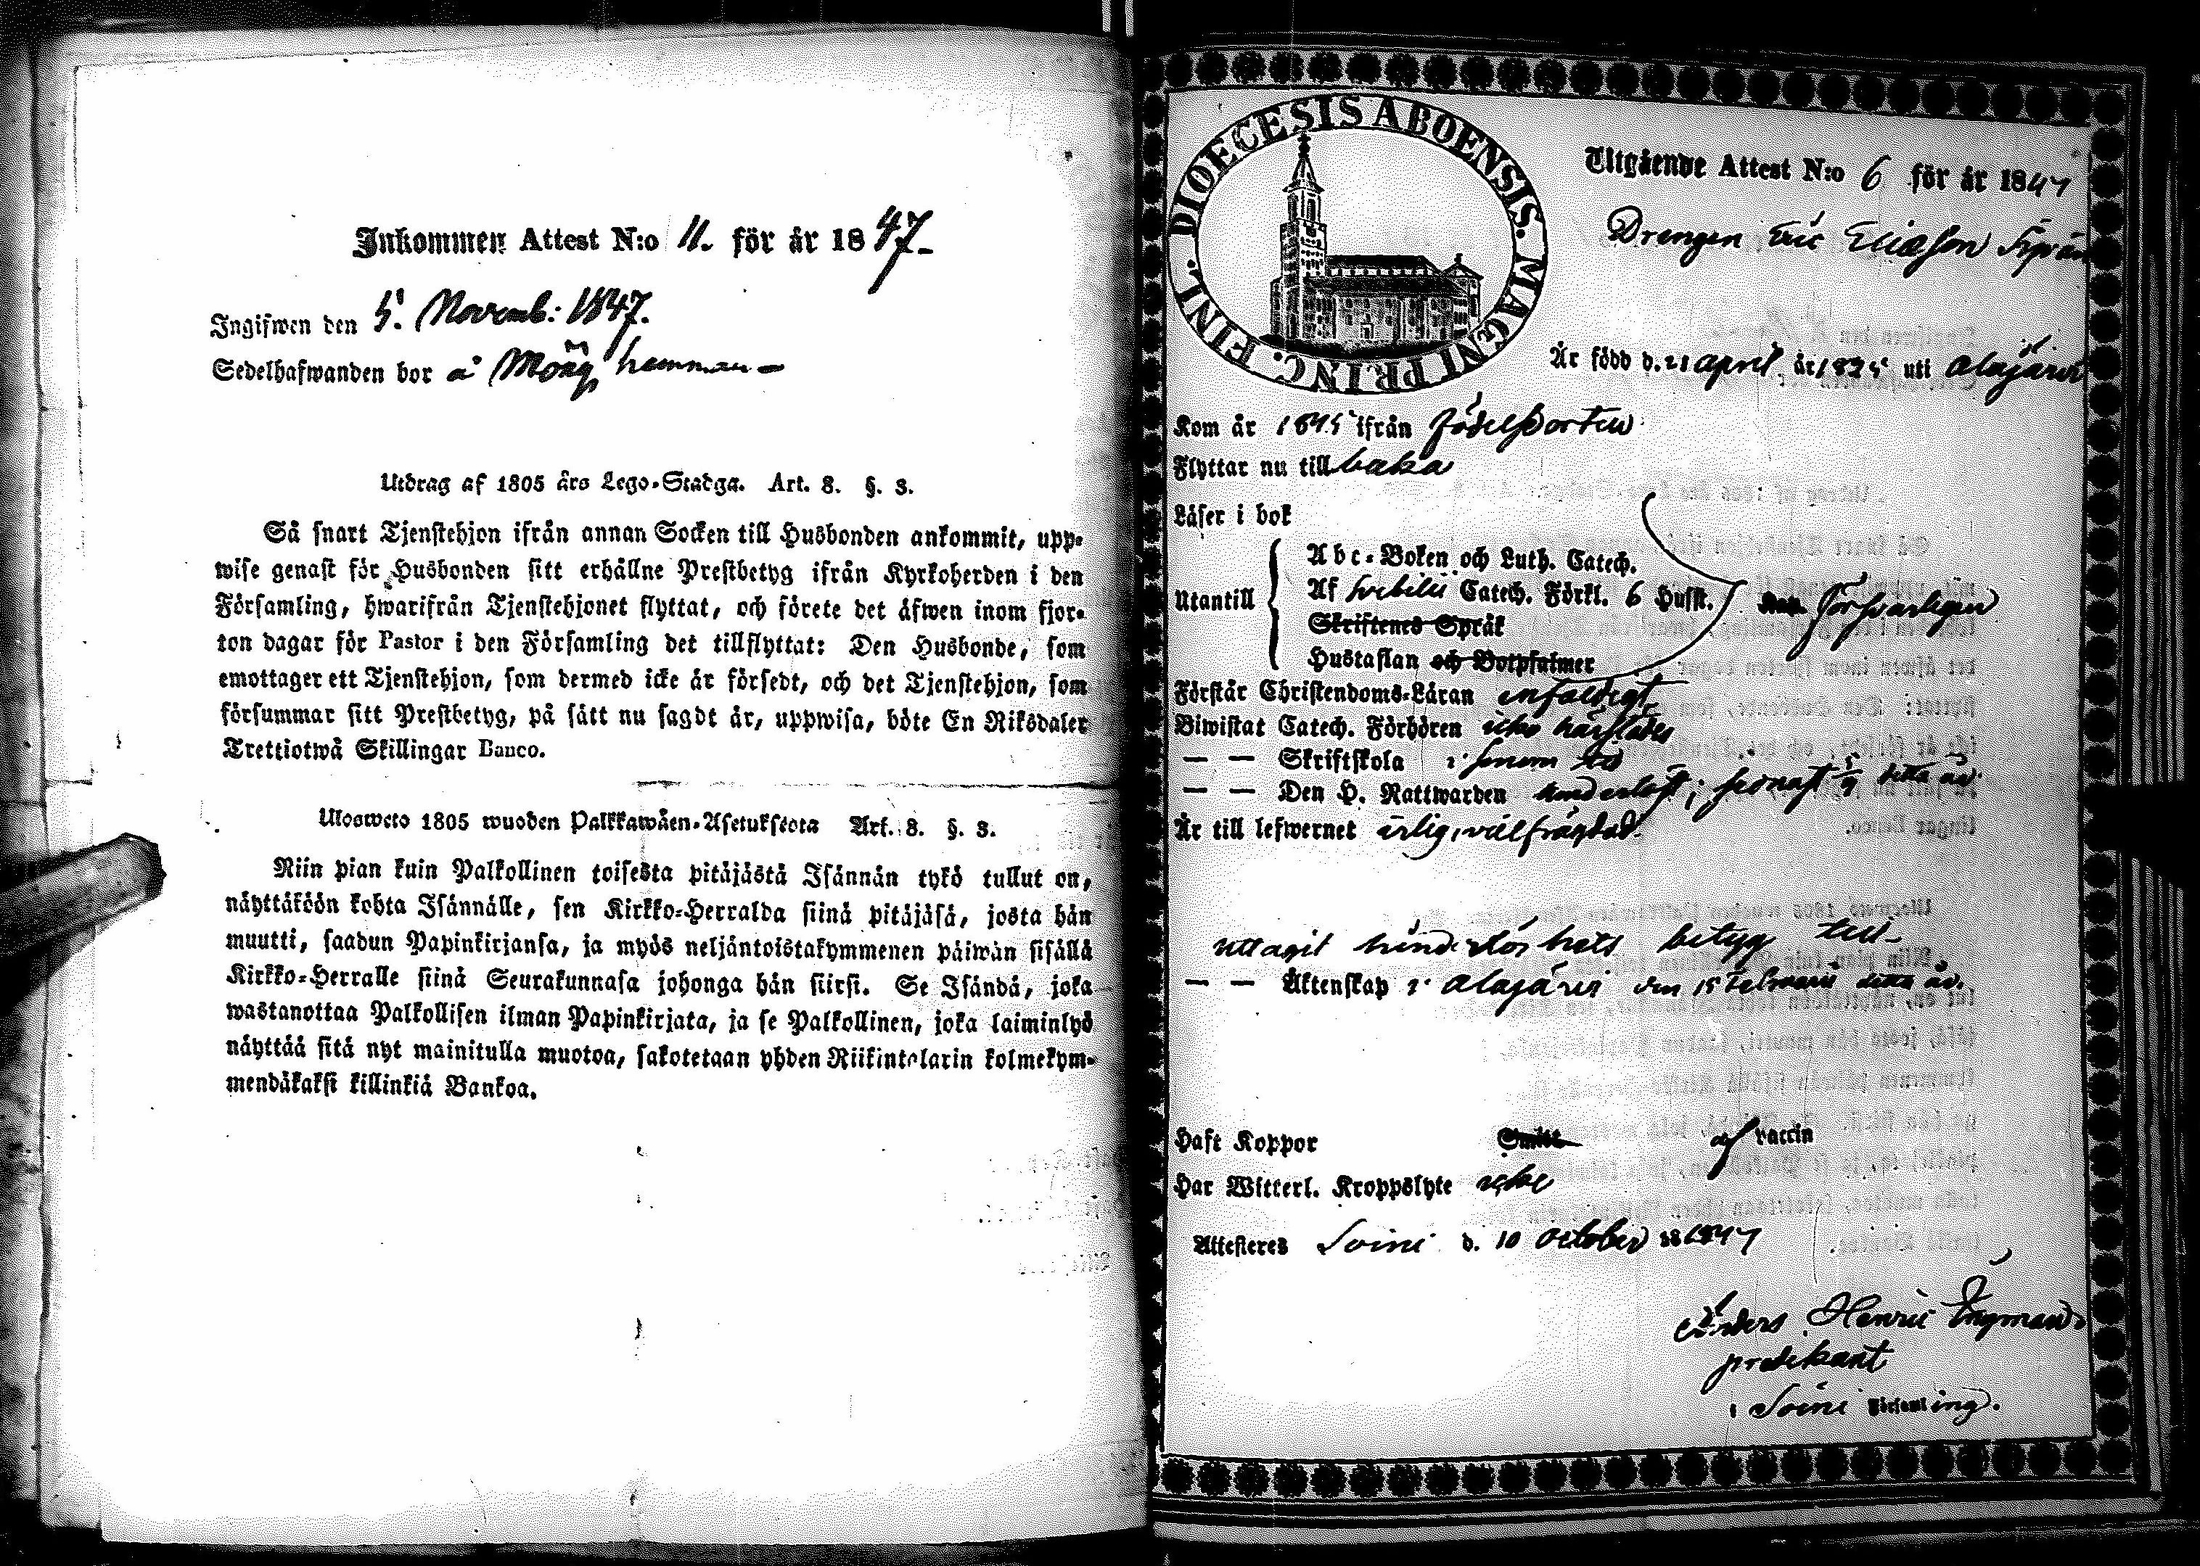 Inkommen Attest N:o 11. för år 1847.
Ingifwen den 5. Novemb: 1847.
Sedelhafwanden bor å hemman
Utdrag af 1805 års Lego-Stadga. Art. 8. §. 3.
Så snart Tjenstehjon ifrån annan Socken till Husbonden ankommit, upp-
wise genast för Husbonden sitt erhållne Prestbetyg ifrån Kyrkoherden i den
Församling, hwarifrån Tjenstehjonet flyttat, och förete det äfwen inom fjor-
ton dagar för Pastor i den Församling det tillflyttat: Den Husbonde, som
emottager ett Tjenstehjon, som dermed icke är försedt, och det Tjenstehjon, som
försummar sitt Prestbetyg, på sätt nu sagdt är, uppwisa, böte En Riksdaler
Trettiotwå Skillingar Banco.
Ulosweto 1805 wuoden Palkkawäen-Asetuksesta Art. 8. §. 3.
Niin pian kuin Palkollinen toisesta pitäjästä Isännän tykö tullut on,
näyttäköön kohta Isännälle, sen Kirkko-Herralda siinä pitäjäsä, josta hän
muutti, saadun Papinkirjansa, ja myös neljäntoistakymmenen päiwän sisällä
Kirkko-Herralle siinä Seurakunnasa johonga hän siirsi. Se Isändä, joka
wastanottaa Palkollisen ilman Papinkirjata, ja se Palkollinen, joka laiminlyö
näyttää sitä nyt mainitulla muotoa, sakotetaan yhden Riikintalarin kolmekym-
mendäkaksi killinkiä Bankoa.
DIOECESIS ABOENSIS. MAGNI PRINC. FINL.
Utgående Attest N:o 6 för år 1847
Drengen Eric Eliasson
Är född d. 21 april år 1825 uti Alajärvi
Kom år 1845 ifrån födelseorten
Flyttar nu till baka
Läser i bok
Utantill
Abc-Boken och Luth. Catech.
Af Svebilii Catech. Förkl. 6 Husst. försvarligen
Skriftenes Språk
Hustaflan och Botpsalmer
Förstår Christendoms-Läran enfaldigt
Biwistat Catech. Förhören icke härstädes
— — Skriftskola i
— — Den H. Nattwarden senast detta år.
Är till lefwernet ärlig, välfrägdad.
uttagit hinderslöshets betyg till
— — Äktenskap i Alajärvi den 15 Februarii detta år.
Haft Koppor Smitt af vaccin
Har Witterl. Kroppslyte icke
Attesteres Soini d. 10 October 1847
Anders Henric Ingman
predikant
i Soini Församling.